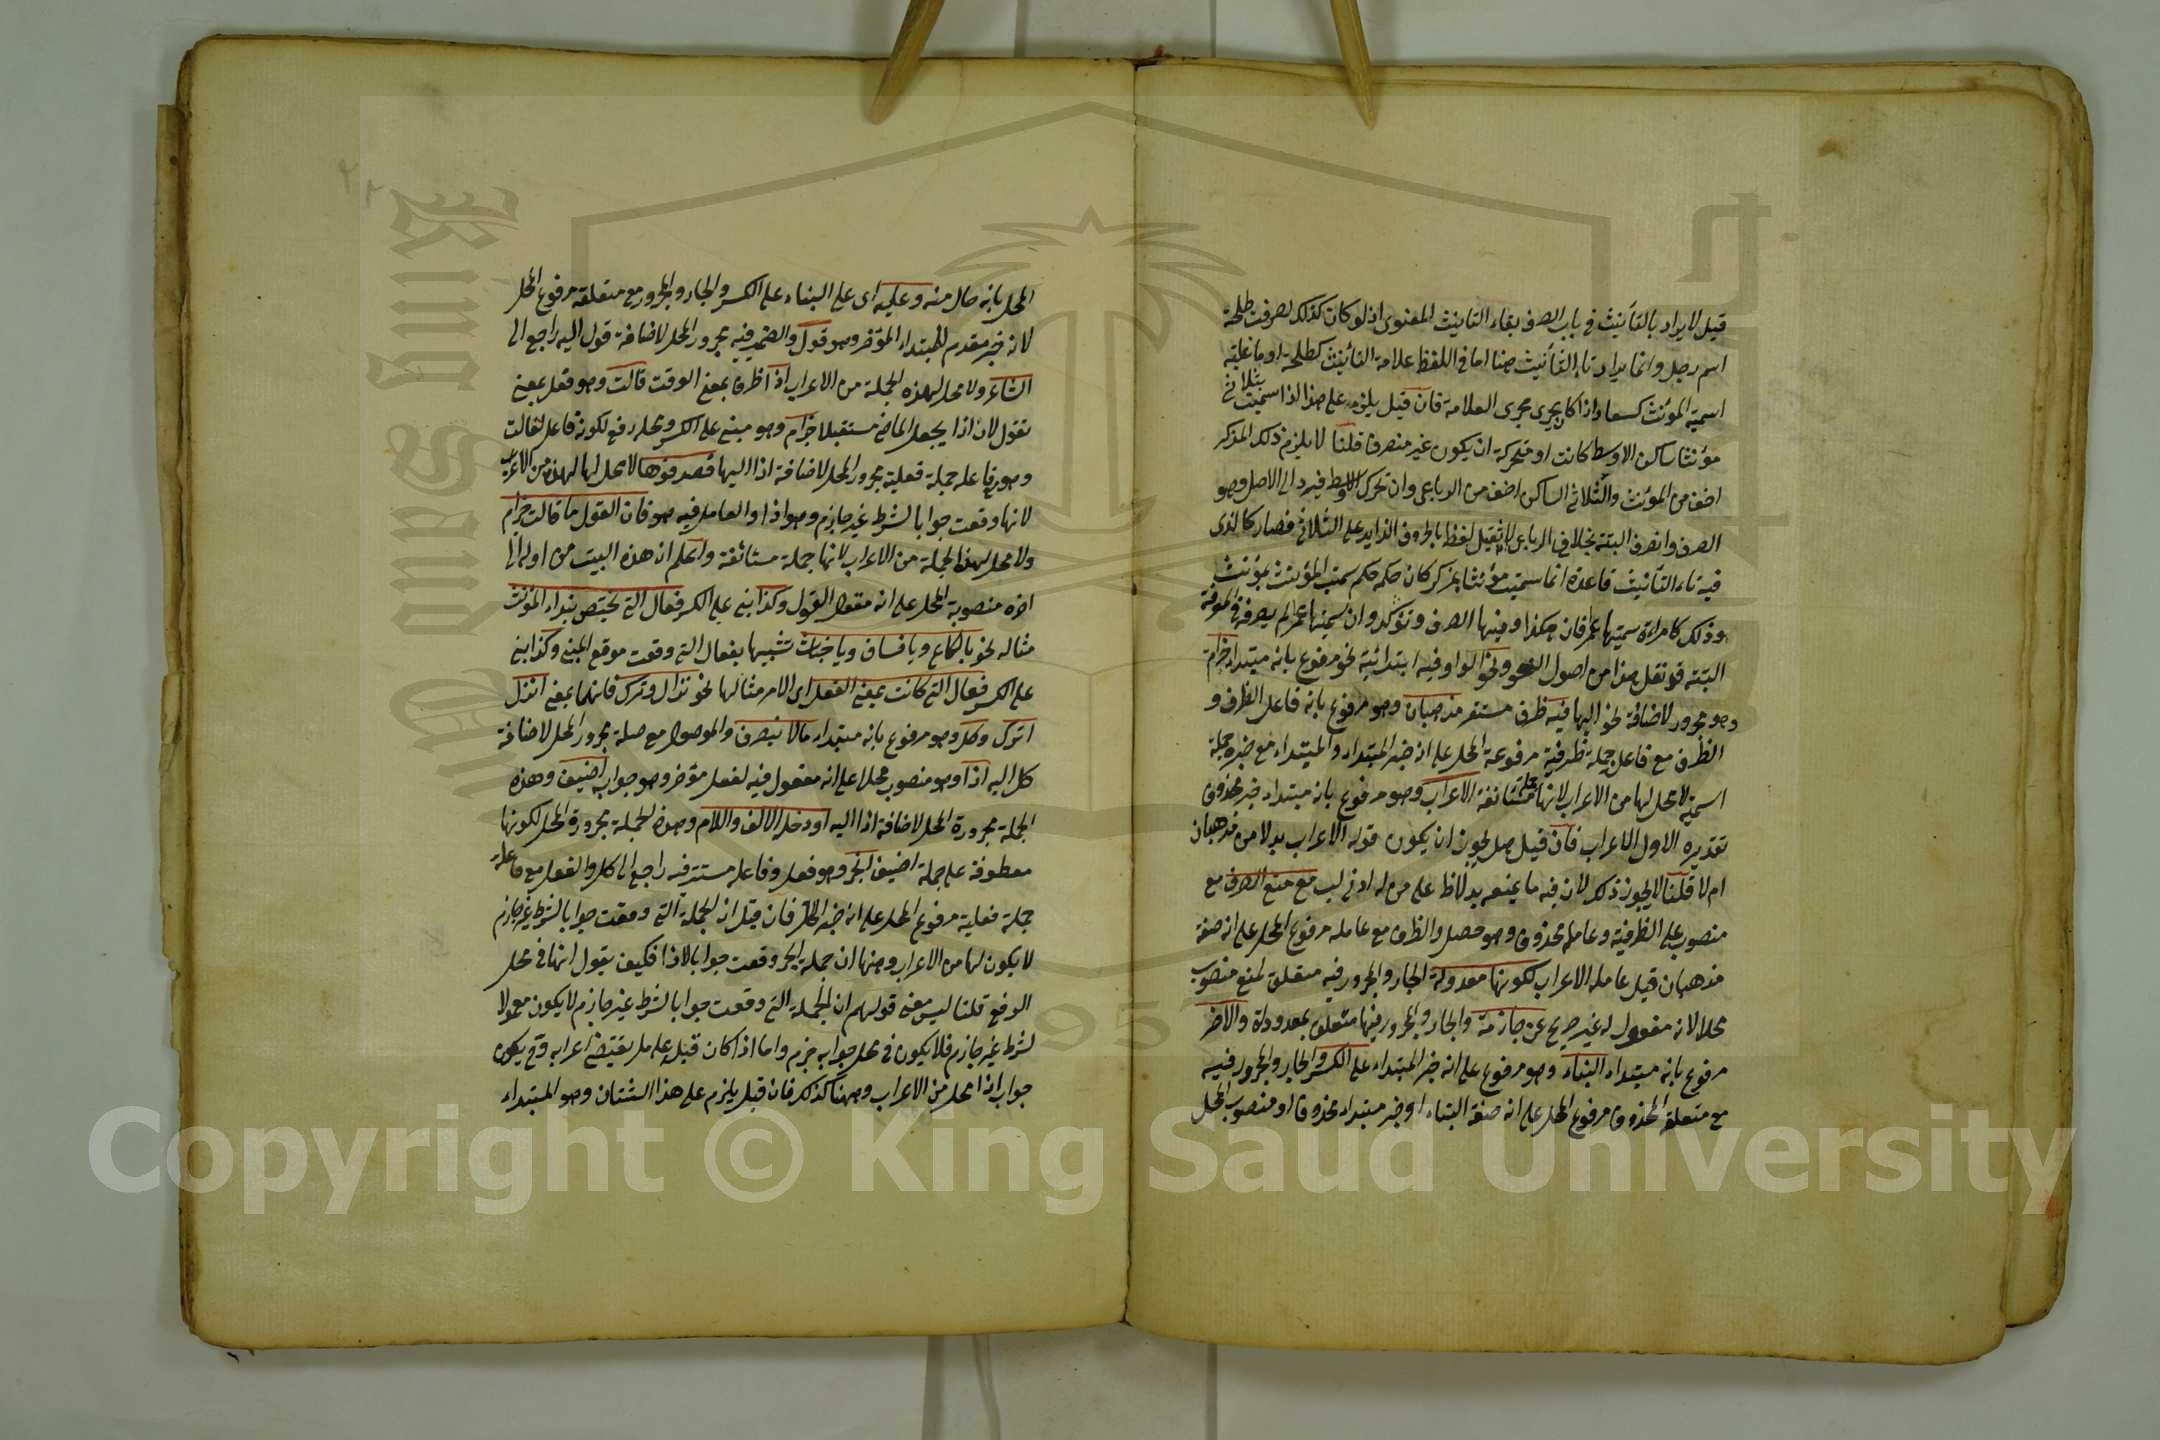 قيل لا يراد بالتأنيث في باب الصرف بقاء التانيث المعنوى اذ لو كان كذلك لصرفت طلحة
اسم رجل وانما يراد تاء التأنيث هنا اما في اللفظ علامة التأنيث كطلحة او ما علية
اسمية المؤنث كسعاد اذا كان يجرى مجرى العلامة فان قيل يلزم على هذا اذا سميت بثلاثي
مؤنثا ساكن الاوسط كانت او متحركة ان يكون غير منصرف قلنا لا يلزم ذلك المذكر
اخف من المؤنث والثلاثي الساكن اخف من الرباعى وان تحرك الاوسط فيرد الى الاصل وهو
الصرف وانصرف البتة بخلاف الرباعى لانه ثقيل لفظا بالحروف الزايد على الثلاثي فصار كالذى
فيه تاء التأنيث قاعدة انما سميت مؤنثا بمذكر كان حكمه حكم سميت المؤنث بمؤنث
وذلك كامراة سميتها بعمر فان هكذا وفيها الصرف وتؤكد وان سميتها بعمر لم يصرف في المعرفة
البتة قد نقل هذا من اصول النحو ونحو الواو فيه ابتدائية نحو مرفوع بانه مبتداء حزام
وهو مجرور لاضافة نحو اليها فيه ظرف مستقر مذهبان وهو مرفوع بانه فاعل الظرف و
الظرف مع فاعل جملة ظرفية مرفوعة المحل على انه خبر المبتداء والمبتداء مع خبره جملة
اسمية لا محل لها من الاعراب لانها جملة مستانفة الاعراب وهو مرفوع بانه مبتداء خبره محذوف
تقديره الاول الاعراب فان قيل هل يجوز ان يكون قوله الاعراب بدلا من مذهبان
ام لا قلنا لا يجوز ذلك لان فيه ما يمنعه بدلا ظ على من له ادنى لب مع منع الصرف مع
منصوب على الظرفية وعامله محذوف وهو حصل والظرف مع عامله مرفوع المحل على انه صفة
مذهبان قيل عامله الاعراب لكونها معدولة الجار والمجرور فيه متعلق لمنع منصوب
محلا لانه مفعول له غير صريح عن جازمة والجار والمجرور فيها متعلق بمعدولة والآخر
مرفوع بانه مبتداء البناء وهو مرفوع على انه خبر المبتداء على الكسر والجار والمجرور فيه
مع متعلقه المحذوف مرفوع المحل على انه صفة البناء او خبر مبتداء محذوف او منصوب المحل
المحل بانه حال منه وعليه اى على البناء على الكسر والجار والمجرور مع متعلقه مرفوع المحل
لانه خبر مقدم للمبتداء المؤخر وهو قول والضمير فيه مجرور المحل لاضافة قول اليه راجع الى
الشاعر ولا محل لهذه الجملة من الاعراب اذا ظرف بمعنى الوقت قالت وهو فعل بمعنى
تقول لان اذا يجعل الماضى مستقبلا حزام وهو مبنى على الكسر ومحله رفع لكونه فاعل لقالت
وهو مع فاعله جملة فعلية مجرور المحل لاضافة اذا اليها فصدقوها لا محل لها لهذه من الاعراب
لانها وقعت جوابا لشرط غير جازم وهو اذا والعامل فيه هو فان القول ما قالت حزام
ولا محل لهذه الجملة من الاعراب لانها جملة مستأنفة واعلم ان هذه البيت من اوله الى
اخره منصوبة المحل على انه مقول القول وكذا بنى على الكسر فعال التى يختص بنداء المؤنث
مثاله نحو يالكاع ويافساق وياخباث تشبيها بفعال التى وقعت موقع المبنى وكذا بنى
على الكسر فعال التى كانت بمعنى الفعل اى الامر مثالها نحو نزال وتراك فانهما بمعنى انزل
اترك وكل وهو مرفوع بانه مبتداء ما لا ينصرف والموصول مع صلة مجرور المحل لاضافة
كل اليه اذا وهو منصوب محلا على انه مفعول فيه لفعل مؤخر وهو جوابه اضيف وهذه
الجملة مجرورة المحل لاضافة اذا اليه او دخل الالف واللام وهذه الجملة مجرورة المحل لكونها
معطوفة على جملة اضيف انجر وهو فعل وفاعله مستتر فيه راجع الى كل والفعل مع فاعله
جملة فعلية مرفوع المحل على انه خبر الكل فان قيل ان الجملة التى وقعت جوابا لشرط غير جازم
لا يكون لها من الاعراب وهنها ان جملة انجر وقعت جوابا لاذا فكيف يقول انها في محل
الرفع قلنا ليس معنى قولهم ان الجملة التى وقعت جوابا لشرط غير جازم لا يكون معمولا
لشرط غير جازم فلا يكون في محل جوابه جزم واما اذا كان قبله عامل يقتضى اعرابه وقع يكون
جواب اذا محل من الاعراب وههنا كذلك فان قيل يلزم على هذا الشتان وهو المبتداء